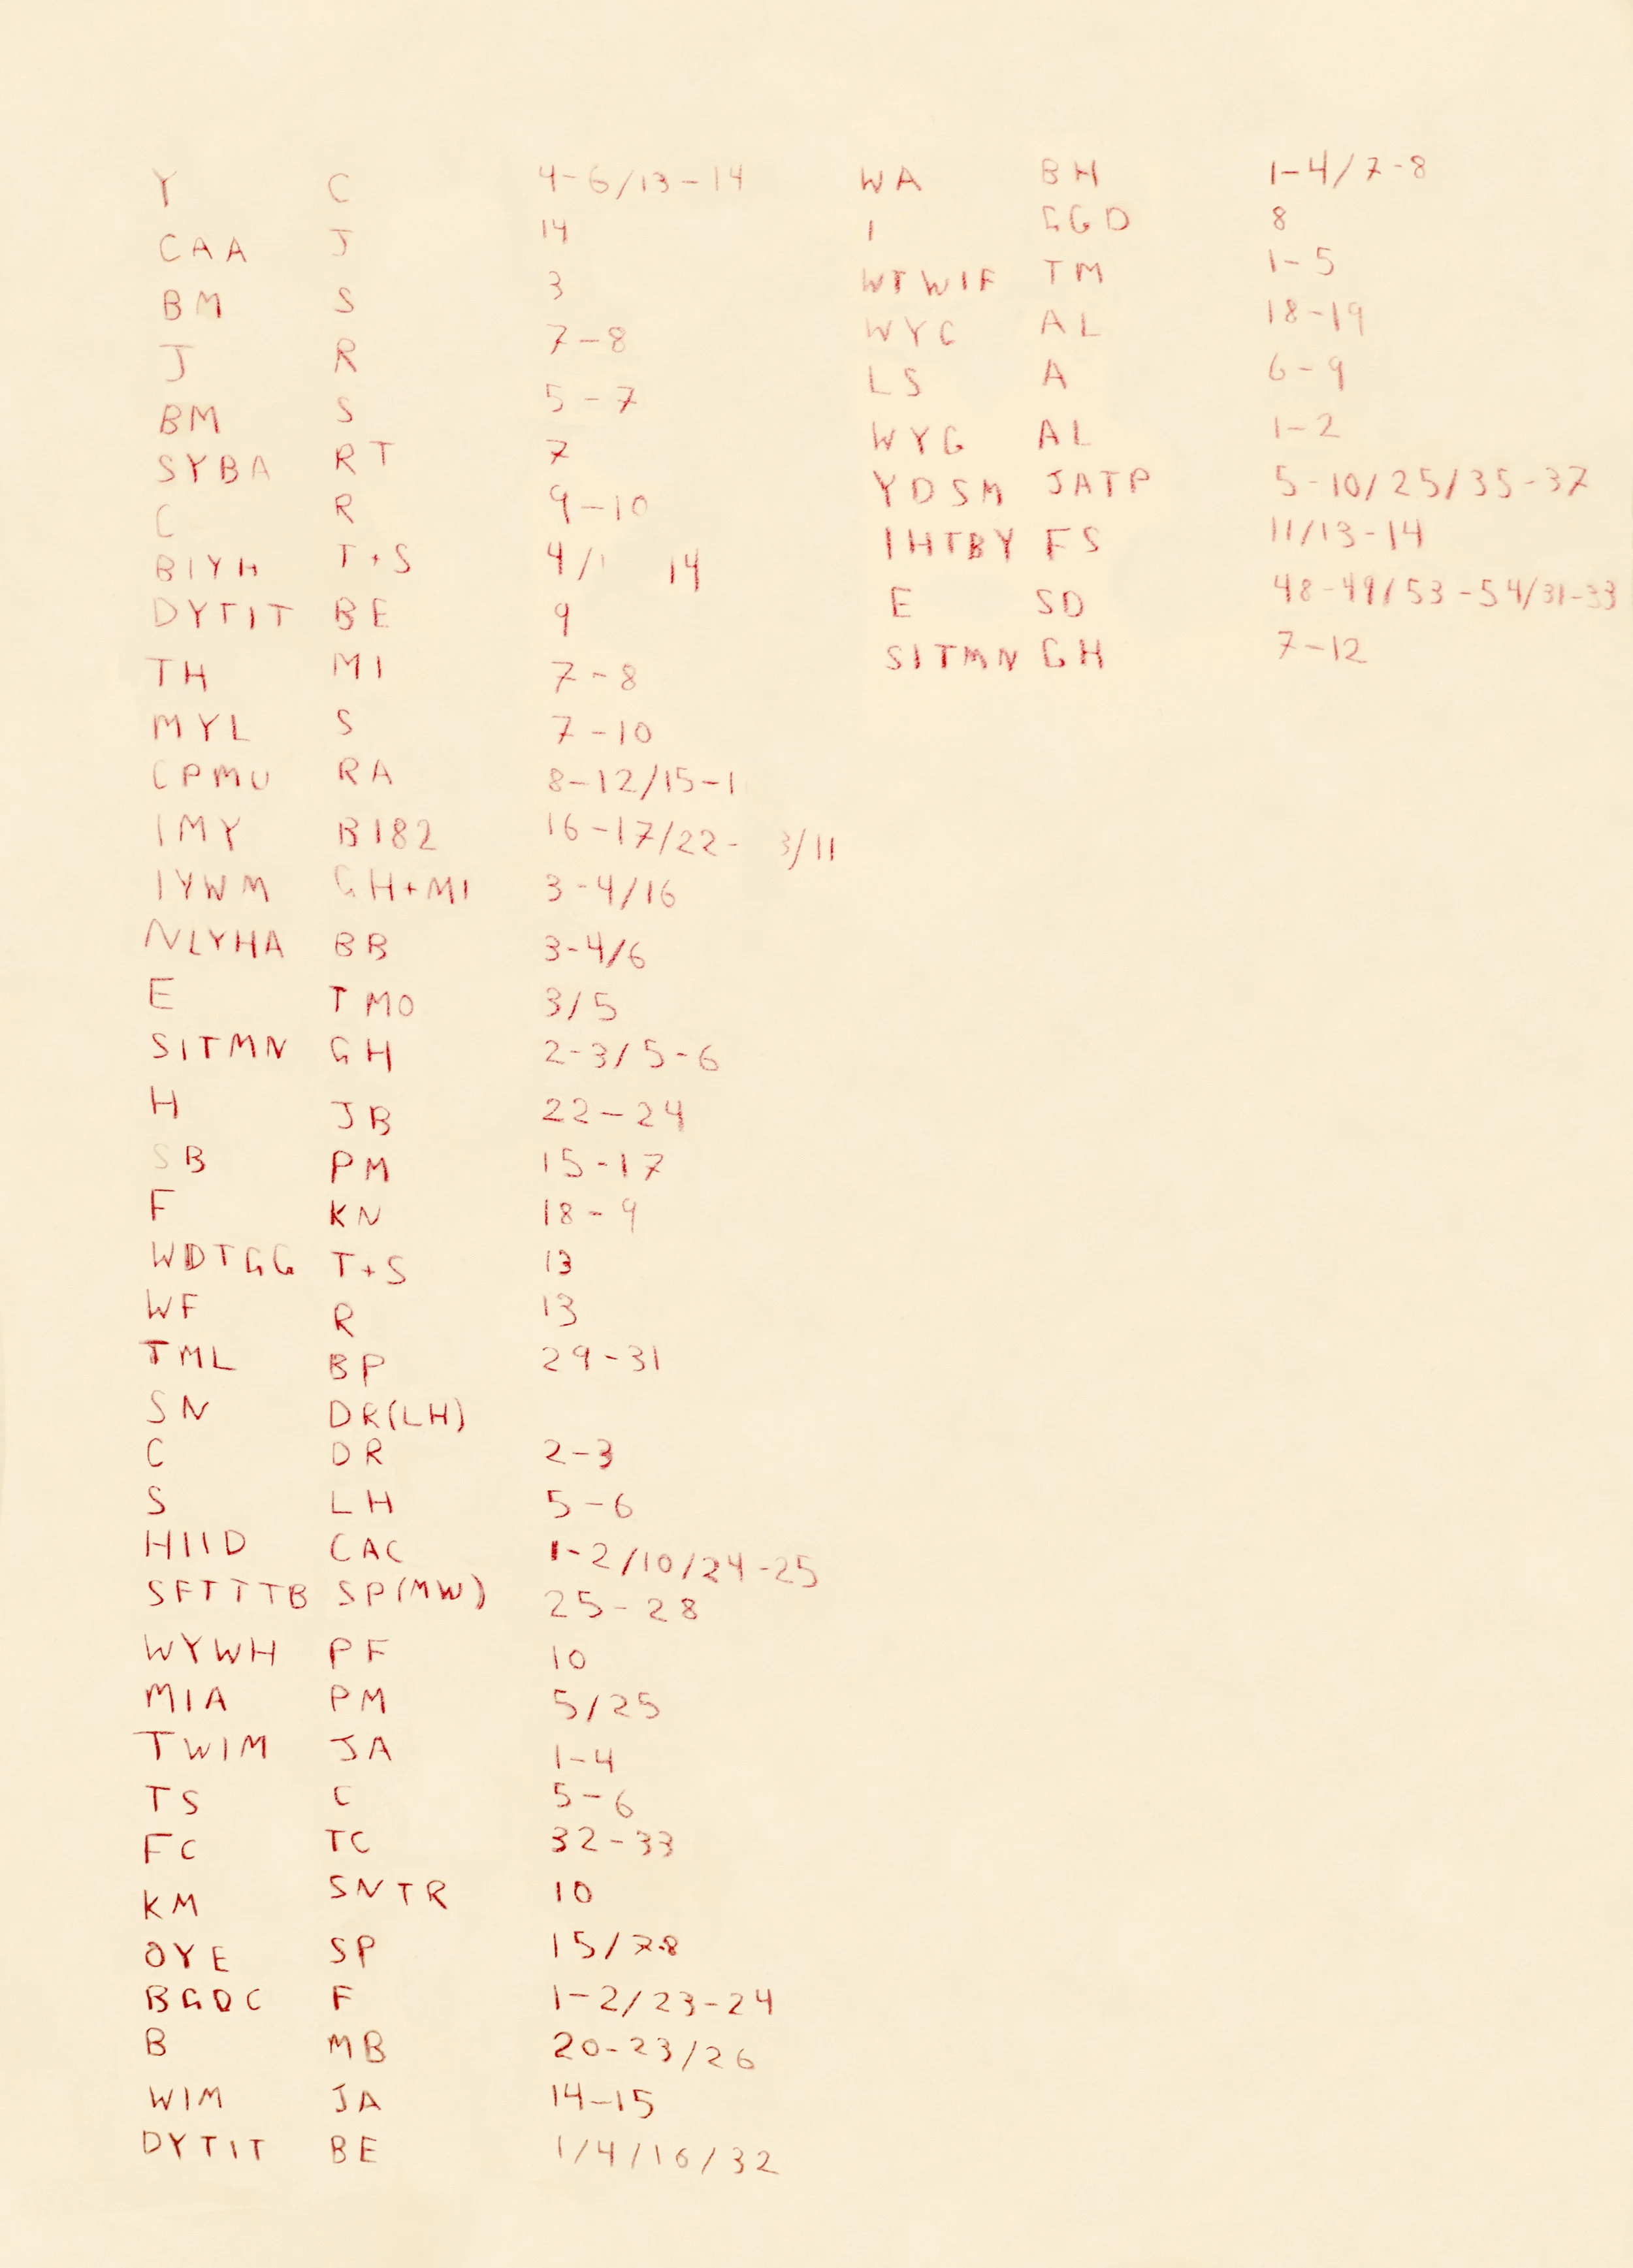 Y C 4-6/13-14
CAA J 14
BM S 3
J R 7-8
BM S 5-7
SYBA RT 7
C R 9-10
BIYH T+S 4/1 14
DYTIT BE 9
TH MI 7-8
MYL S 7-10
CPMU RA 8-12/15-1
IMY B182 16-17/22- 3/11
IYWM GH+MI 3-4/16
NLYHA BB 3-4/6
E TMO 3/5
SITMN GH 2-3/5-6
H JB 22-24
SB PM 15-17
F KN 18-9
WDTGG T+S 13
WF R 13
TML BP 29-31
SN DR(LH)
C DR 2-3
S LH 5-6
HIID CAC 1-2/10/24-25
SFTTTB SP(MW) 25-28
WYWH PF 10
MIA PM 5/25
TWIM JA 1-4
TS C 5-6
FC TC 32-33
KM SNTR 10
OYE SP 15/7-8
BGDC F 1-2/23-24
B MB 20-23/26
WIM JA 14-15
DYTIT BE 1/4/16/32
WA BH 1-4/7-8
I GGD 8
WTWIF TM 1-5
WYC AL 18-19
LS A 6-9
WYG AL 1-2
YDSM JATP 5-10/25/35-37
IHTBY FS 11/13-14
E SD 48-49/53-54/31-33
SITMN GH 7-12